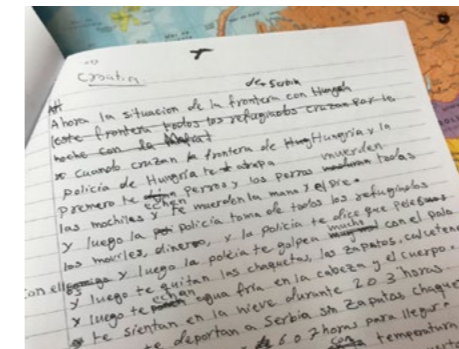 Croatia
de + Serbia
Ahora la situacion de la frontera con
este frontera todos los refugiados cruzan por la
noche con la
Cuando cruzan la frontera de Hungria y la
policia de Hungria te atrapa muerden
premero te echen perros y los perros todas
las mochiles y te muerden la mano y el pie.
y luego la policia toma de todos los refugiados
los moviles, dinero, y la policia te dice que pelees
con ellos y luego la policia te golpen mucho con el palo
y luego te quitan las chaquetas, las zapatos, calceten
y luego te echan agua fria en la cabeza y el cuerpo.
te sientan en la nieve durante 2 o 3 horas.
te deportan a Serbia sin zapatos chaque
6 o 7 horas para llegar
con temperatur